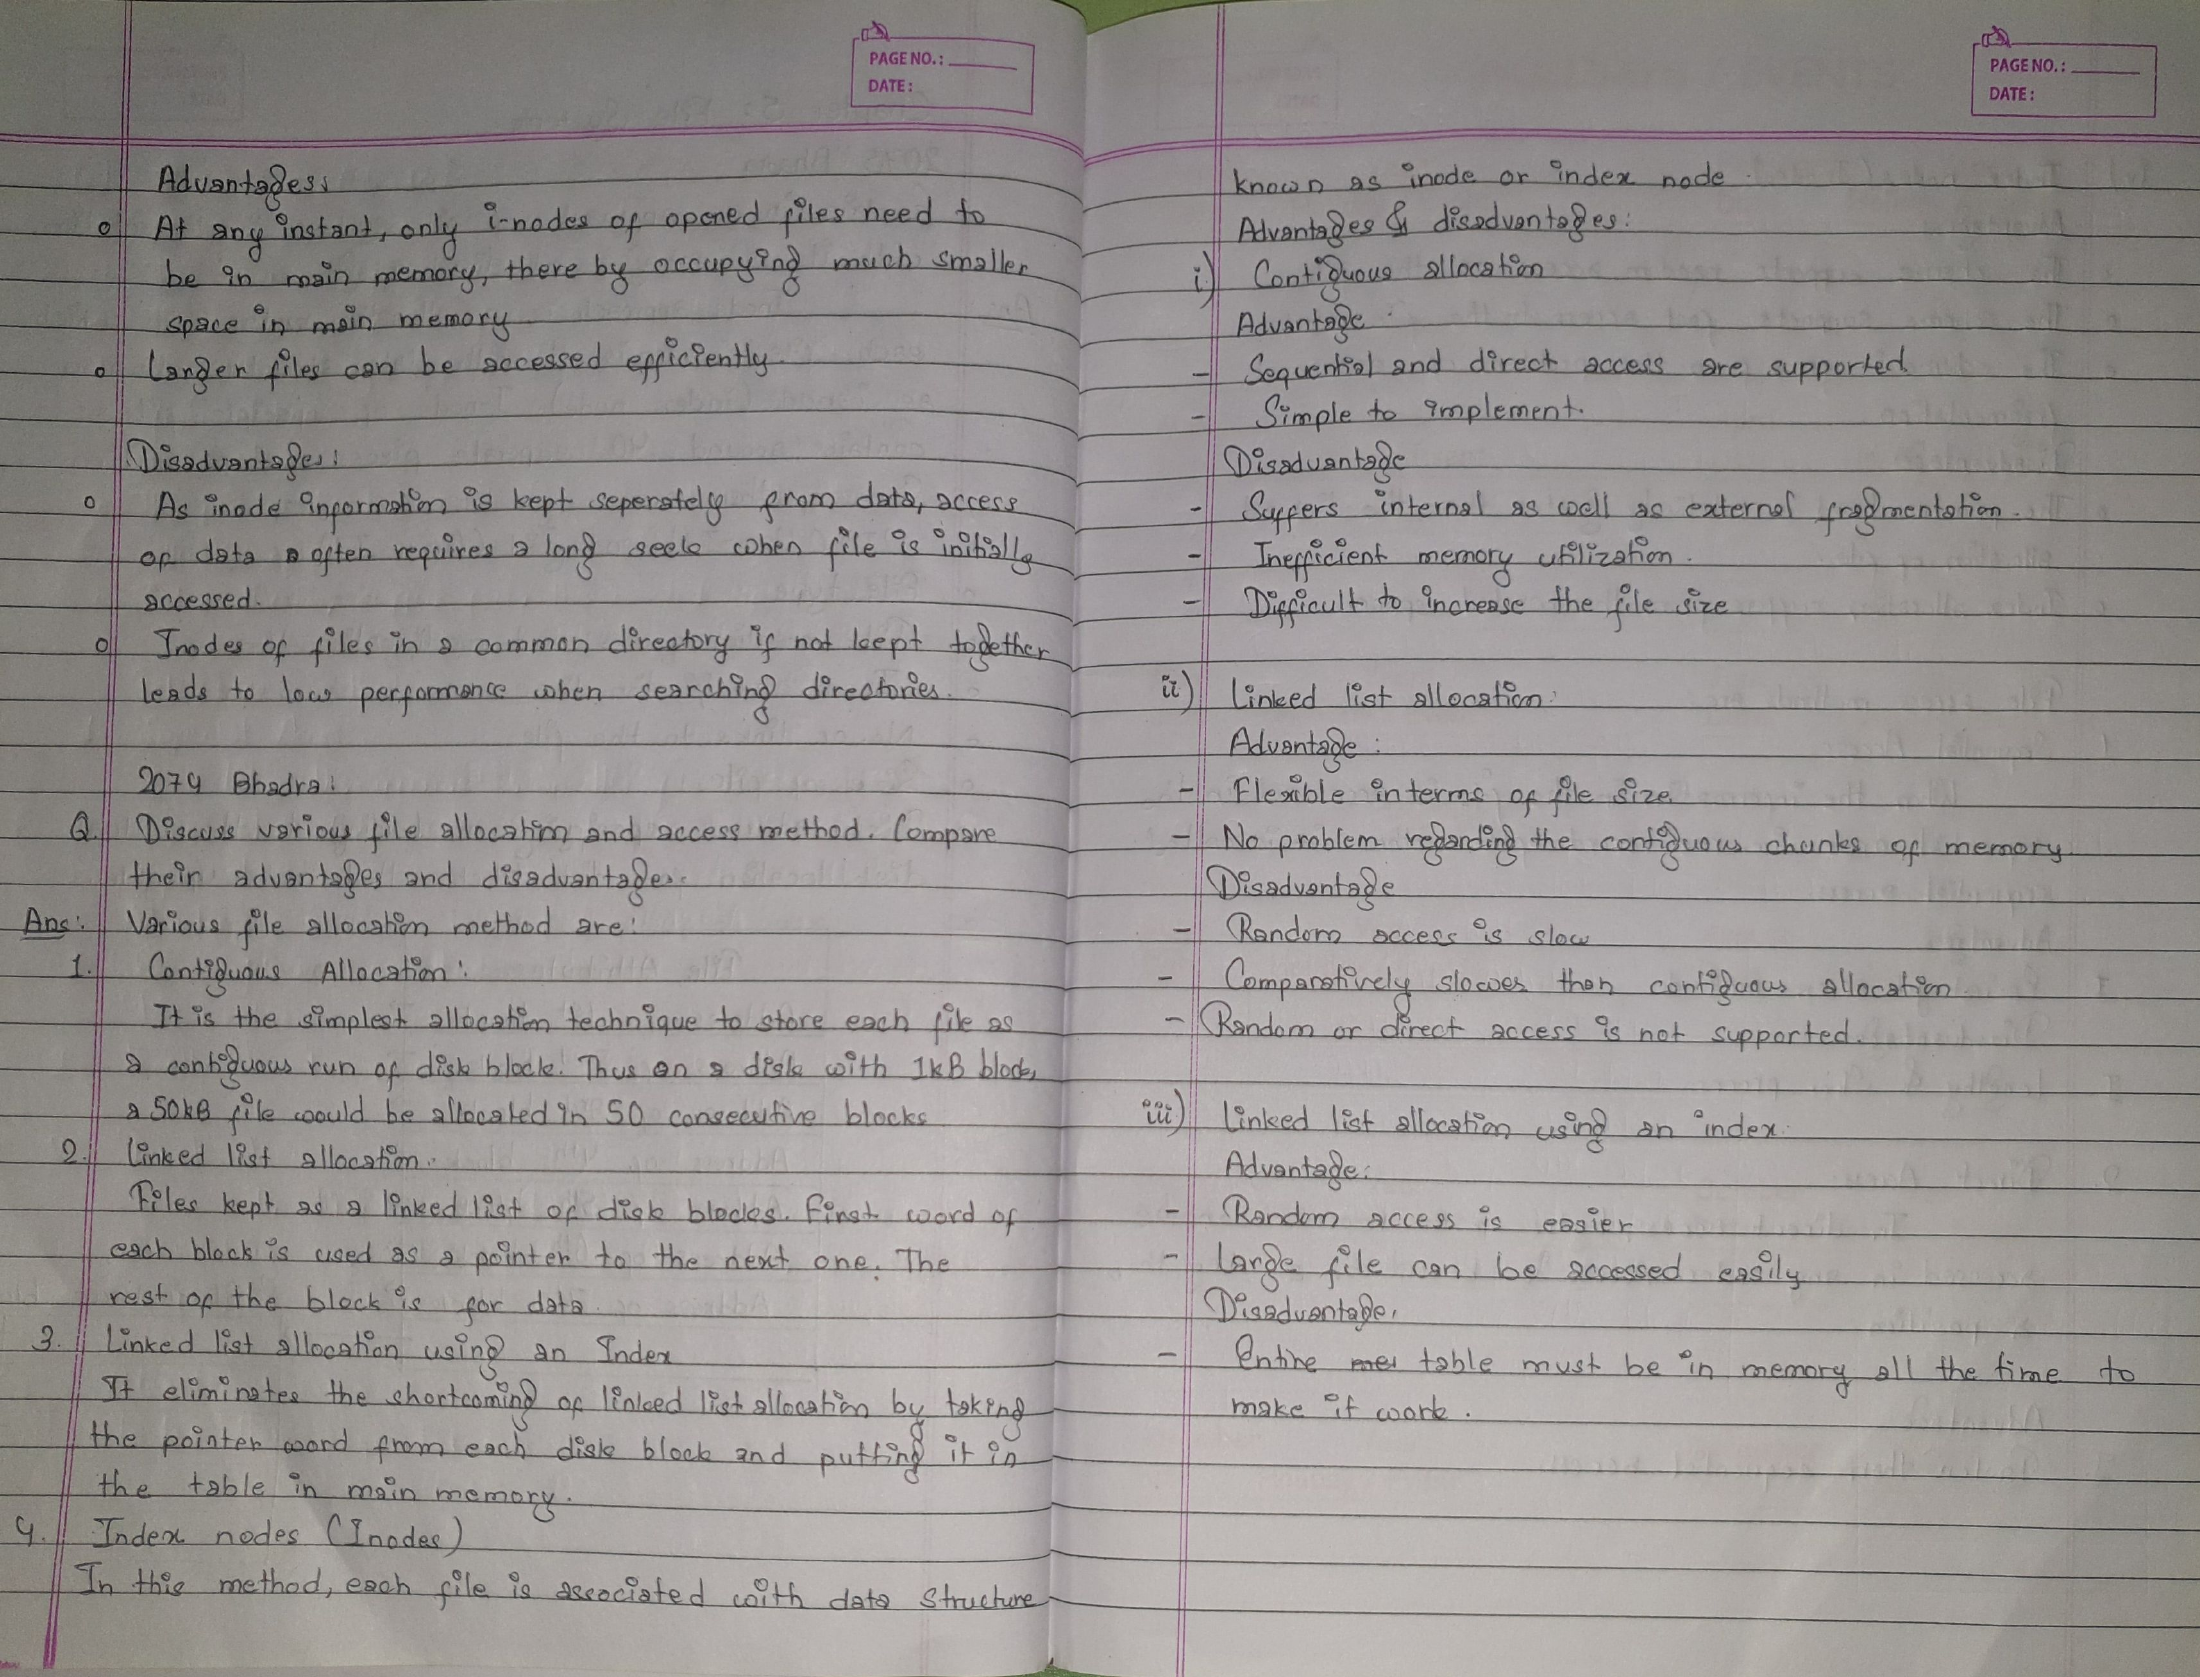 PAGE NO.:
DATE:
Advantages:
o At any instant, only i-nodes of opened files need to
be in main memory, there by occupying much smaller
space in main memory
o Larger files can be accessed efficiently.
Disadvantages:
o As inode information is kept seperately from data, access
of data often requires a long seek when file is initially
accessed.
o Inodes of files in a common directory if not kept together
leads to low performance when searching directories.
2074 Bhadra:
Q. Discuss various file allocation and access method. Compare
their advantages and disadvantages.
Ans: Various file allocation method are:
1. Contiguous Allocation:
It is the simplest allocation technique to store each file as
a contiguous run of disk block. Thus on a disk with 1kB block,
a 50kB file would be allocated in 50 consecutive blocks
2. Linked list allocation.
Files kept as a linked list of disk blocks. First word of
each block is used as a pointer to the next one. The
rest of the block is for data.
3. Linked list allocation using an Index
It eliminates the shortcoming of linked list allocation by taking
the pointer word from each disk block and putting it in
the table in main memory.
4. Index nodes (Inodes)
In this method, each file is associated with data structure
PAGE NO.:
DATE:
known as inode or index node.
Advantages & disadvantages:
i) Contiguous allocation
Advantage.
- Sequential and direct access are supported.
- Simple to implement.
Disadvantage
- Suffers internal as well as external fragmentation.
- Inefficient memory utilization.
- Difficult to increase the file size
ii) Linked list allocation:
Advantage:
- Flexible interms of file size.
- No problem regarding the contiguous chunks of memory.
Disadvantage
- Random access is slow
- Comparatively slower than contiguous allocation
- Random or direct access is not supported.
iii) Linked list allocation using an index.
Advantage:
- Random access is easier
- Large file can be accessed easily
Disadvantage.
- Entire table must be in memory all the time to
make it work.